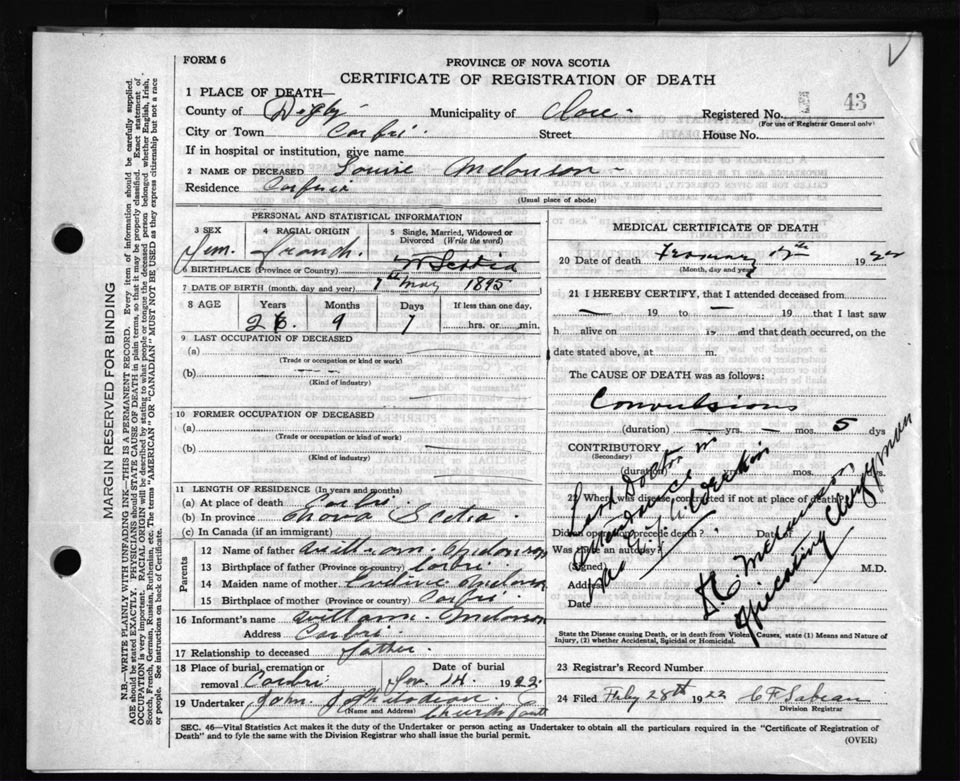 FORM 6
PROVINCE OF NOVA SCOTIA
CERTIFICATE OF REGISTRATION OF DEATH
1 PLACE OF DEATH—
County of Digby Municipality of Clare Registered No. 43
(For use of Registrar General only)
City or Town Corbri Street House No.
If in hospital or institution, give name
2 NAME OF DECEASED Louise Melonson
Residence
(Usual place of abode)
PERSONAL AND STATISTICAL INFORMATION
3 SEX 4 RACIAL ORIGIN 5 Single, Married, Widowed or Divorced (Write the word)
Fem. French.
6 BIRTHPLACE (Province or Country) N Scotia
7 DATE OF BIRTH (month, day and year) 7th May 1895
8 AGE Years Months Days If less than one day,
26 9 7 hrs. or min.
9 LAST OCCUPATION OF DECEASED
(a)
(Trade or occupation or kind or work)
(b)
(Kind of industry)
10 FORMER OCCUPATION OF DECEASED
(a)
(Trade or occupation or kind of work)
(b)
(Kind of industry)
11 LENGTH OF RESIDENCE (In years and months)
(a) At place of death Corbri
(b) In province Nova Scotia
(c) In Canada (if an immigrant)
Parents
12 Name of father William Melonson
13 Birthplace of father (Province or country) Corbri
14 Maiden name of mother
15 Birthplace of mother (Province or country) Corbri
16 Informant's name William Melonson
Address Corbri
17 Relationship to deceased father
18 Place of burial, cremation or removal Corbri Date of burial 14 1922
19 Undertaker John
(Name and Address) Church Point
MEDICAL CERTIFICATE OF DEATH
20 Date of death 1922
(Month, day and year)
21 I HEREBY CERTIFY, that I attended deceased from
19 to 19 that I last saw
h alive on 19 and that death occurred, on the
date stated above, at m.
The CAUSE OF DEATH was as follows:
Convulsions
(duration) yrs. mos. 5 dys
CONTRIBUTORY
(Secondary)
(duration) yrs. mos. dys
22 Where was disease contracted if not at place of death?
Did an operation precede death? Date of
Was there an autopsy?
(Signed) M.D.
Address
Date
Last Doctor in
attendance
officiating Clergyman
State the Disease causing Death, or in death from Violent Causes, state (1) Means and Nature of
Injury, (2) whether Accidental, Suicidal or Homicidal.
23 Registrar's Record Number
24 Filed Feby 28th 1922 C F Sabean
Division Registrar
SEC. 46—Vital Statistics Act makes it the duty of the Undertaker or person acting as Undertaker to obtain all the particulars required in the "Certificate of Registration of
Death" and to fyle the same with the Division Registrar who shall issue the burial permit.
(OVER)
MARGIN RESERVED FOR BINDING
N.B.—WRITE PLAINLY WITH UNFADING INK—THIS IS A PERMANENT RECORD. Every item of information should be carefully supplied.
AGE should be stated EXACTLY. PHYSICIANS should STATE CAUSE OF DEATH in plain terms, so that it may be properly classified. Exact statement of
OCCUPATION is very important. RACIAL ORIGIN will be described by stating to what people or tongue the deceased person belonged whether English, Irish,
Scotch, French, German, Russian, Ruthenian, etc. The terms "AMERICAN" OR "CANADIAN" MUST NOT BE USED as they express citizenship but not a race
or people. See instructions on back of Certificate.